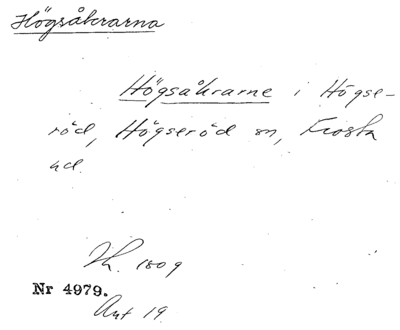 Högsåkrarna
Högsåkrarne i Högse-
röd, Högseröd sn, Frosta
hd.
Lh. 1809
Nr 4979.
Avt 19